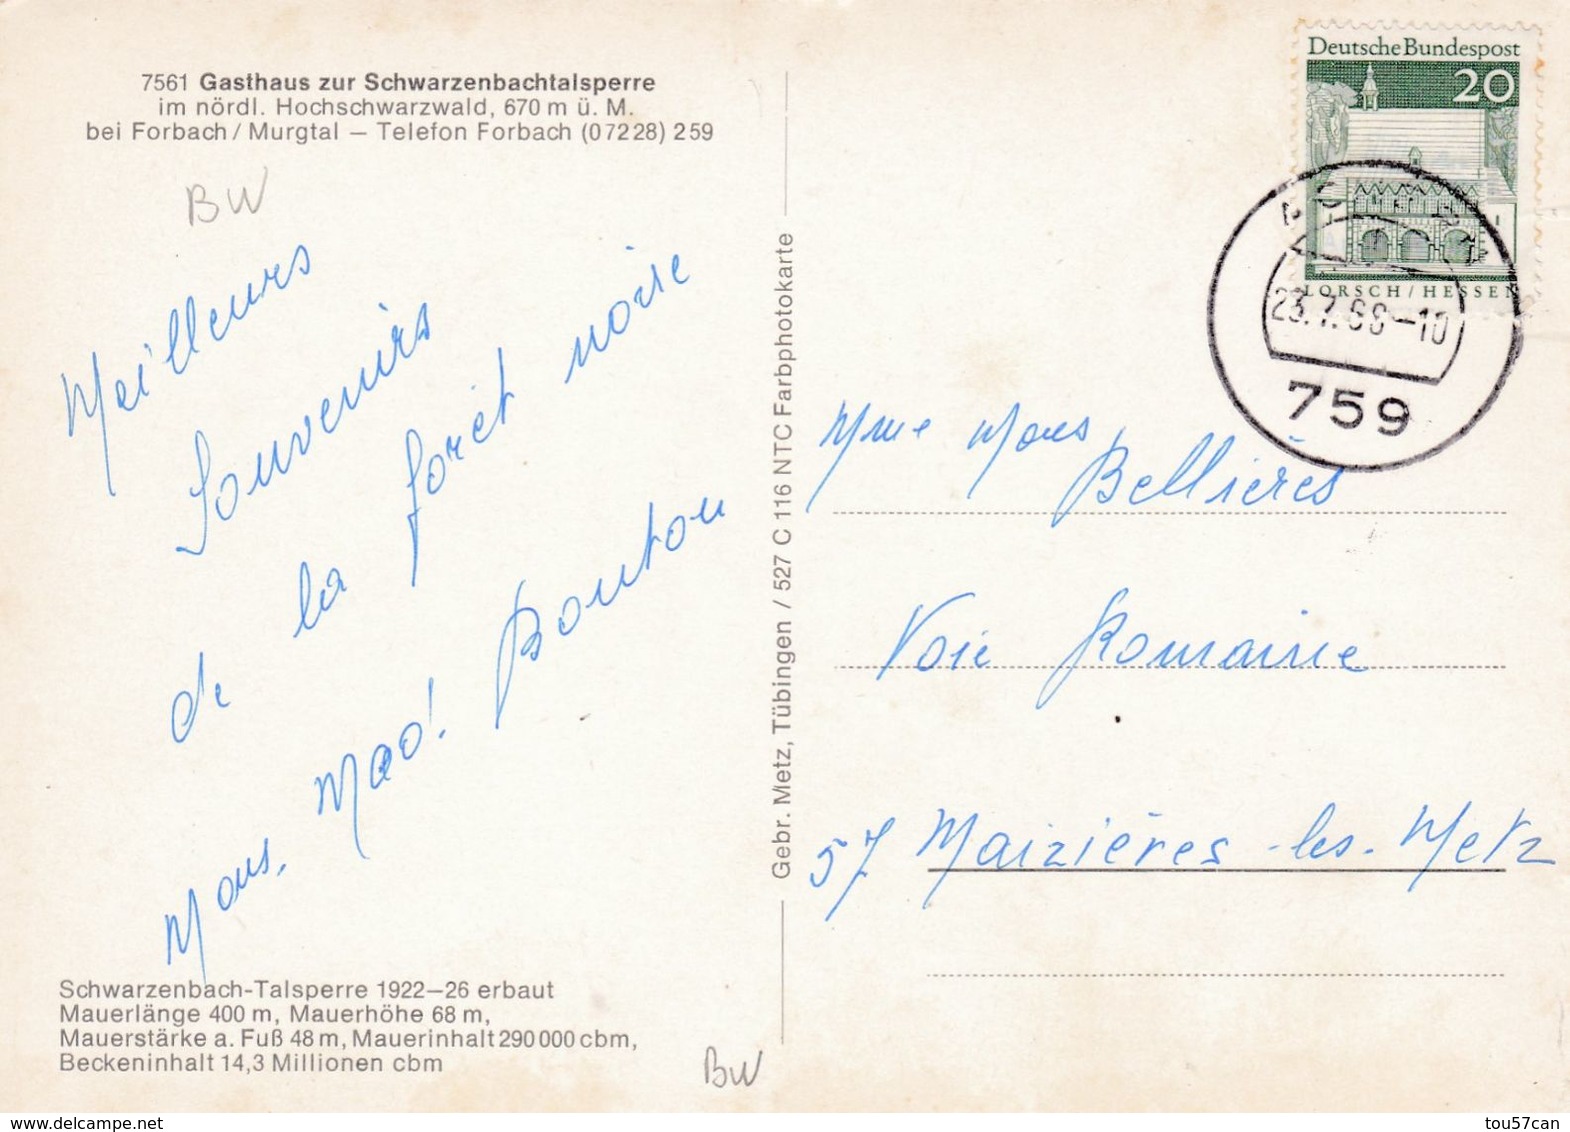 7561 Gasthaus zur Schwarzenbachtalsperre
im nördl. Hochschwarzwald, 670 m ü. M.
bei Forbach / Murgtal — Telefon Forbach (07228) 259
BW
Meilleurs
Souvenirs
de la forêt noire
Mous. Mad! Bouton
Schwarzenbach-Talsperre 1922–26 erbaut
Mauerlänge 400 m, Mauerhöhe 68 m,
Mauerstärke a. Fuß 48 m, Mauerinhalt 290 000 cbm,
Beckeninhalt 14,3 Millionen cbm
BW
Gebr. Metz, Tübingen / 527 C 116 NTC Farbphotokarte
Deutsche Bundespost
20
LORSCH / HESSEN
-10
759
Mme Mous
Bellières
Voie Romaine
57 Maizières-les-Metz
tou57can